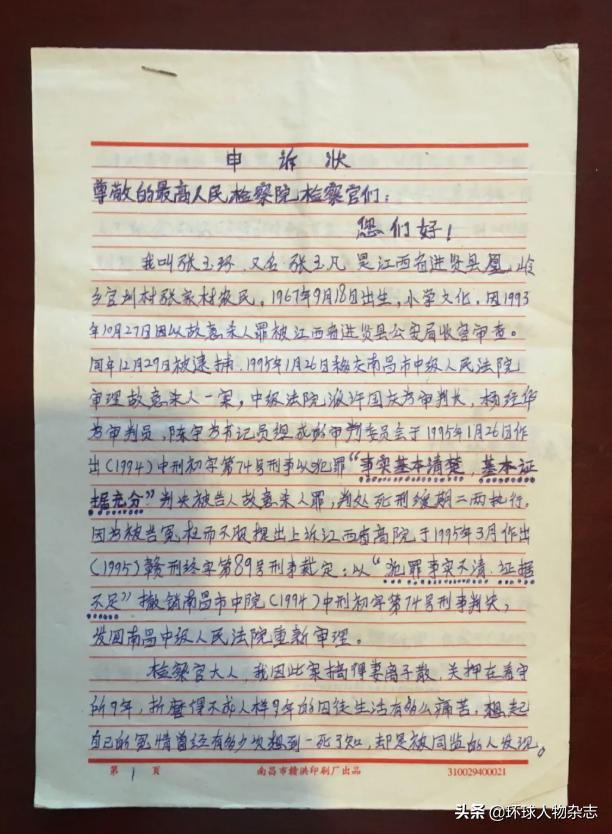 申诉状
尊敬的最高人民检察院检察官们：
您们好！
我叫张玉环，又名张玉凡是江西省进贤县凰岭
乡官圳村张家村农民，1967年9月18日出生，小学文化，因1993
年10月27日因以故意杀人罪被江西省进贤县公安局收容审查。
同年12月29日被逮捕，1995年1月26日经南昌市中级人民法院
审理故意杀人一案，中级法院派许国庆为审判长，杨经华
为审判员，陈宇为书记员组成的审判委员会于1995年1月26日作
出（1994）中刑初字第74号刑事以犯罪“事实基本清楚，基本证
据充分”判决被告人故意杀人罪，判处死刑缓期二两执行。
因为被告冤枉而不服提出上诉江西省高院于1995年3月作出
（1995）赣刑终字第89号刑事裁定：以“犯罪事实不清，证据
不足”撤销南昌市中院（1994）中刑初字第74号刑事判决，
发回南昌中级人民法院重新审理。
检察官大人，我因此案搞得妻离子散，关押在看守
所9年，折磨得不成人样9年的囚徒生活有多么痛苦，想起
自己的冤情曾经有多少次想到一死了知，却是被同监的人发现。
第 1 页
南昌市赣洪印刷厂出品
310029400021
头条 @环球人物杂志